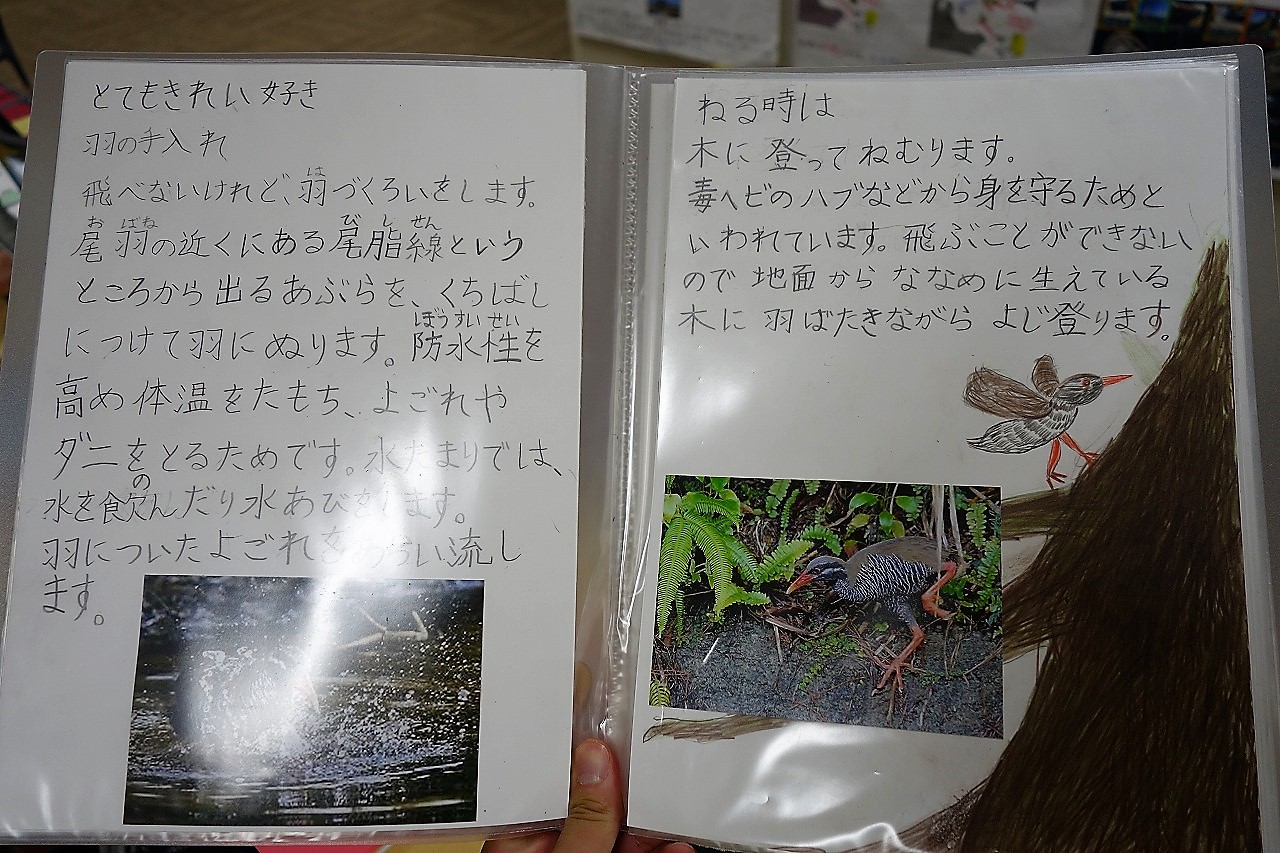 とてもきれい好き
羽の手入れ
飛べないけれど、羽づくろいをします。
尾羽の近くにある尾脂線という
ところから出るあぶらを、くちばし
につけて羽にぬります。防水性を
高め体温をたもち、よごれや
ダニをとるためです。水たまりでは、
水を飲んだり水あびをします。
羽についたよごれを
流し
ます。
ねる時は
木に登ってねむります。
毒ヘビのハブなどから身を守るためと
いわれています。飛ぶことができない
ので地面からななめに生えている
木に羽ばたきながらよじ登ります。